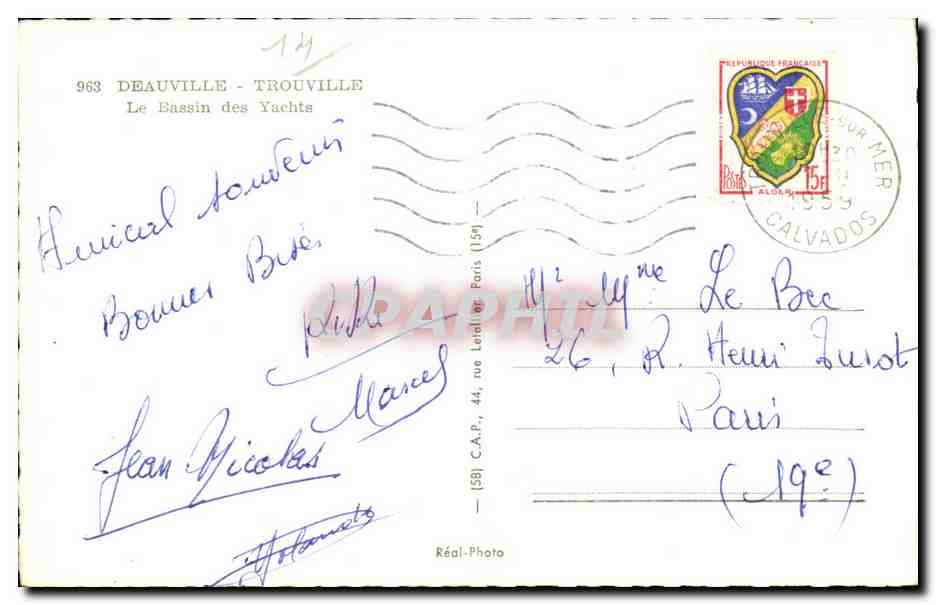 14
963 DEAUVILLE - TROUVILLE
Le Bassin des Yachts
Amical souvenir
Bonnes Bises
Kiki
Marcel
Jean Nicolas
REPUBLIQUE FRANÇAISE
POSTES
15F
ALGER
-SUR-MER
1959
CALVADOS
(58) C.A.P., 44, rue Letellier, Paris (15e)
CPAPHIL
Mr Mme Le Bec
26, R. Henri Turot
Paris
(19e)
Réal-Photo